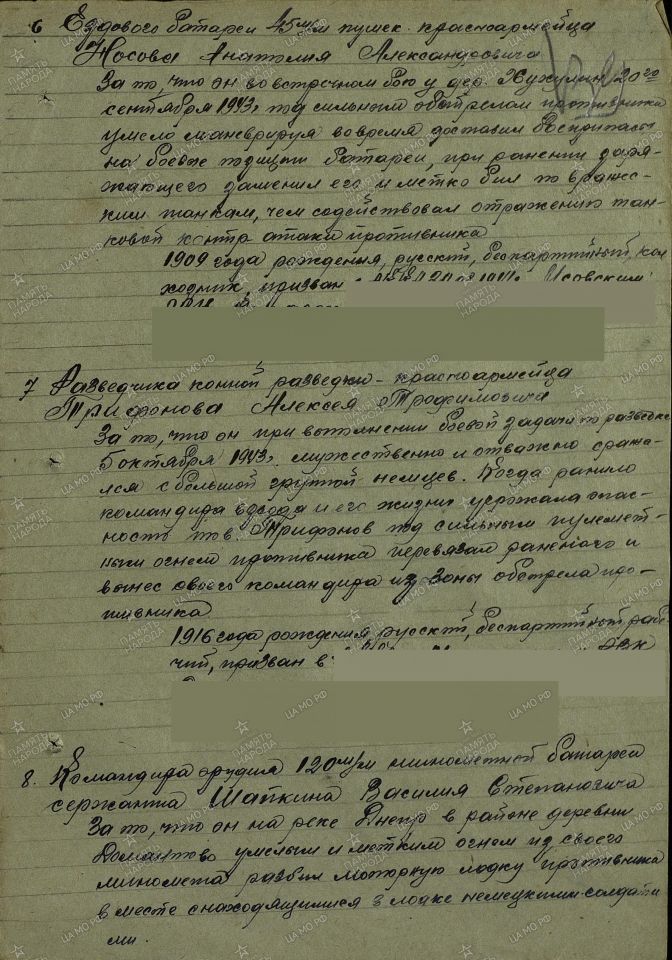 6 Ездового батареи 45 м/м пушек красноармейца
Носова Анатолия Александровича
За то, что он во встречном бою у дер. 20го
сентября 1943г. под сильным обстрелом противника
умело маневрируя вовремя доставил боеприпасы
на боевые позиции батареи, при ранении заря-
жающего заменил его и метко бил по вражес-
ким танкам, чем содействовал отражению тан-
ковой контр атаки противника
1909 года рождения, русский, беспартийный, кол
хозник, призван
7 Разведчика конной разведки - красноармейца
Трифонова Алексея Трофимовича
За то, что он при выполнении боевой задачи по разведке
5 октября 1943г. мужественно и отважно сража-
лся с большой группой немцев. Когда ранило
командира взвода и его жизни угрожала опас-
ность тов. Трифонов под сильным пулемет-
ным огнем противника перевязал раненого и
вынес своего командира из зоны обстрела про-
тивника
1916 года рождения, русский, беспартийный рабо-
чий, призван в РВК
8. Командира орудия 120 м/м минометной батареи
сержанта Шапкина Василия Степановича
За то, что он на реке Днепр в районе деревни
Домантово умелым и метким огнем из своего
миномета разбил моторную лодку противника
вместе с находящимися в лодке немецкими солдата
ми.
ПАМЯТЬ НАРОДА
ЦА МО РФ